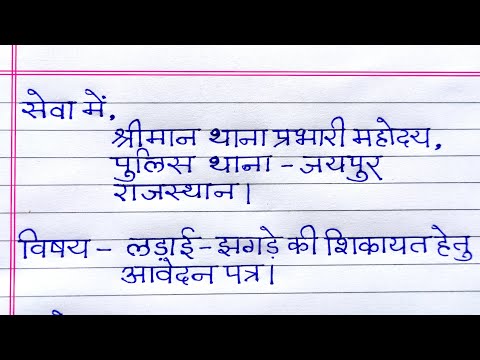 सेवा में,
श्रीमान थाना प्रभारी महोदय,
पुलिस थाना - जयपुर
राजस्थान।
विषय - लड़ाई - झगड़े की शिकायत हेतु
आवेदन पत्र।